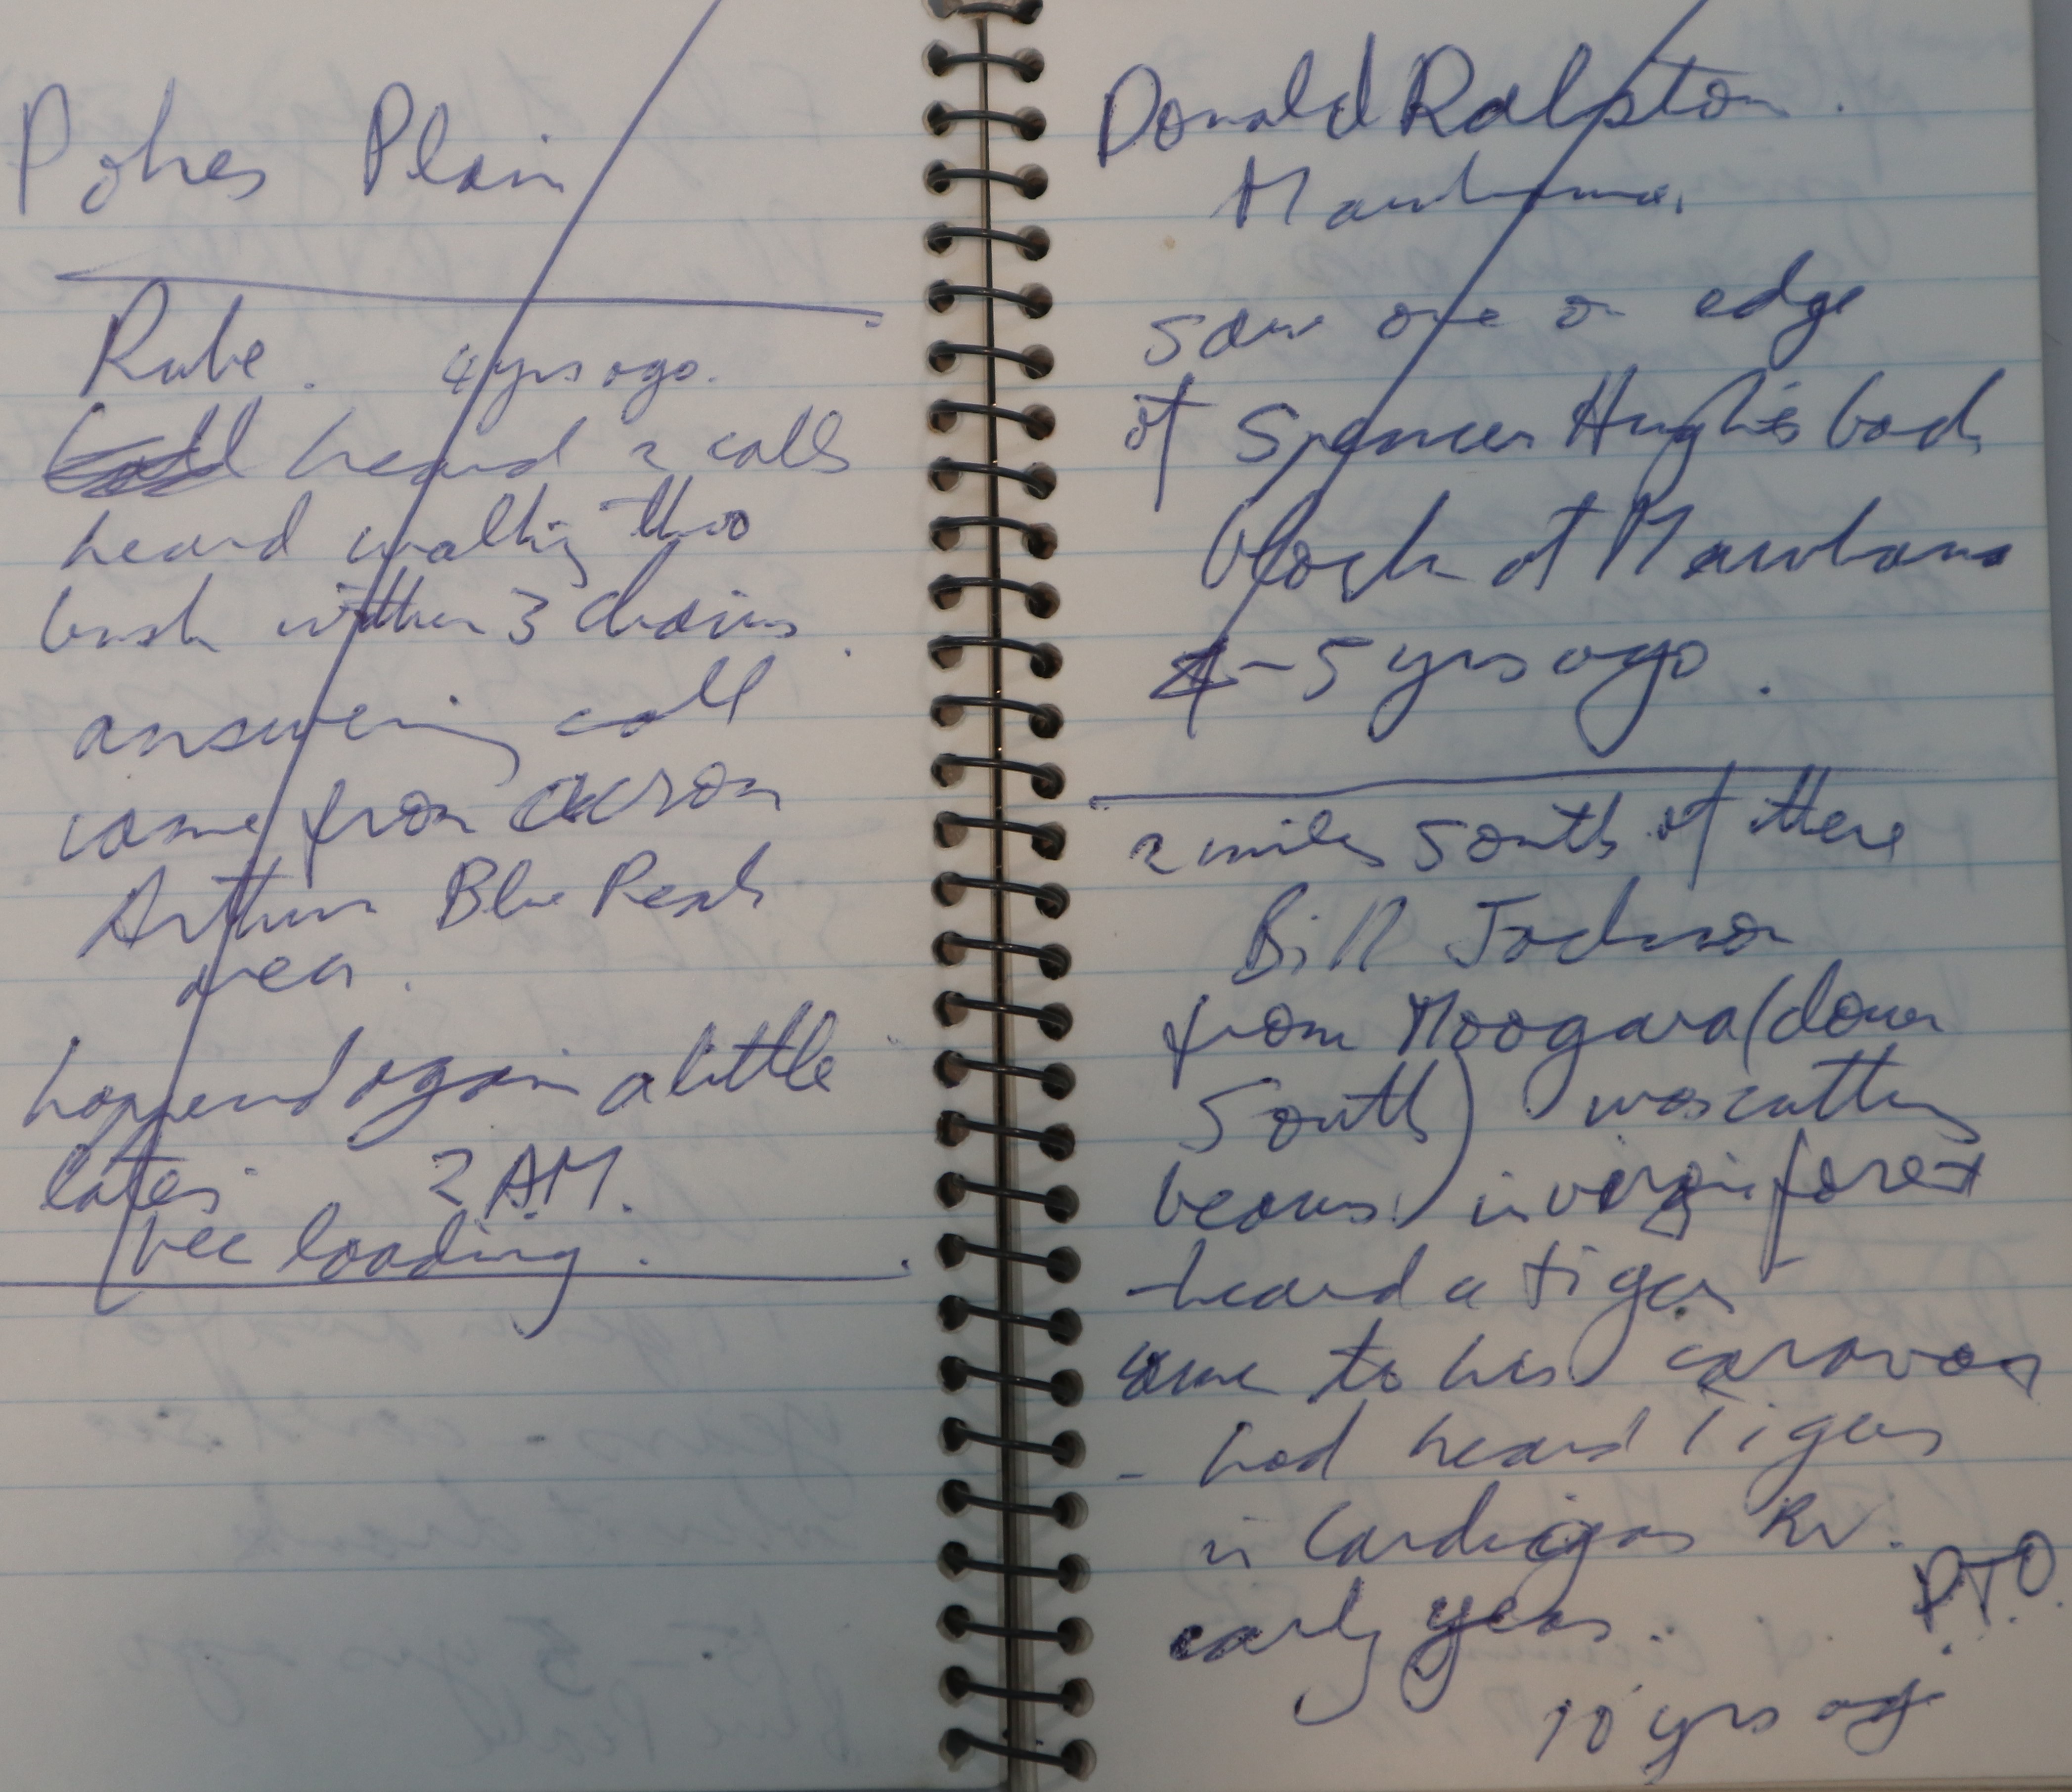 Pokes Plain
Rube. 4 yrs ago.
heard 2 calls
heard walking thro
bush within 3 chains.
answering call
came from across
Arthur Blue Peak
area.
happend again a little
later 2 AM.
bee loading.
Donald Ralston.
Mawbanna.
saw one on edge
of Spencer Hugh's back
block at Mawbanna
4-5 yrs ago.
2 miles south of there
Bill Jackson
from Moogara (down
South) was cutting
beams. in virgin forest
- heard a tiger
came to his caravan
- had heard Tigers
in Cardigan Rv.
early years. P.T.O.
10 yrs ago